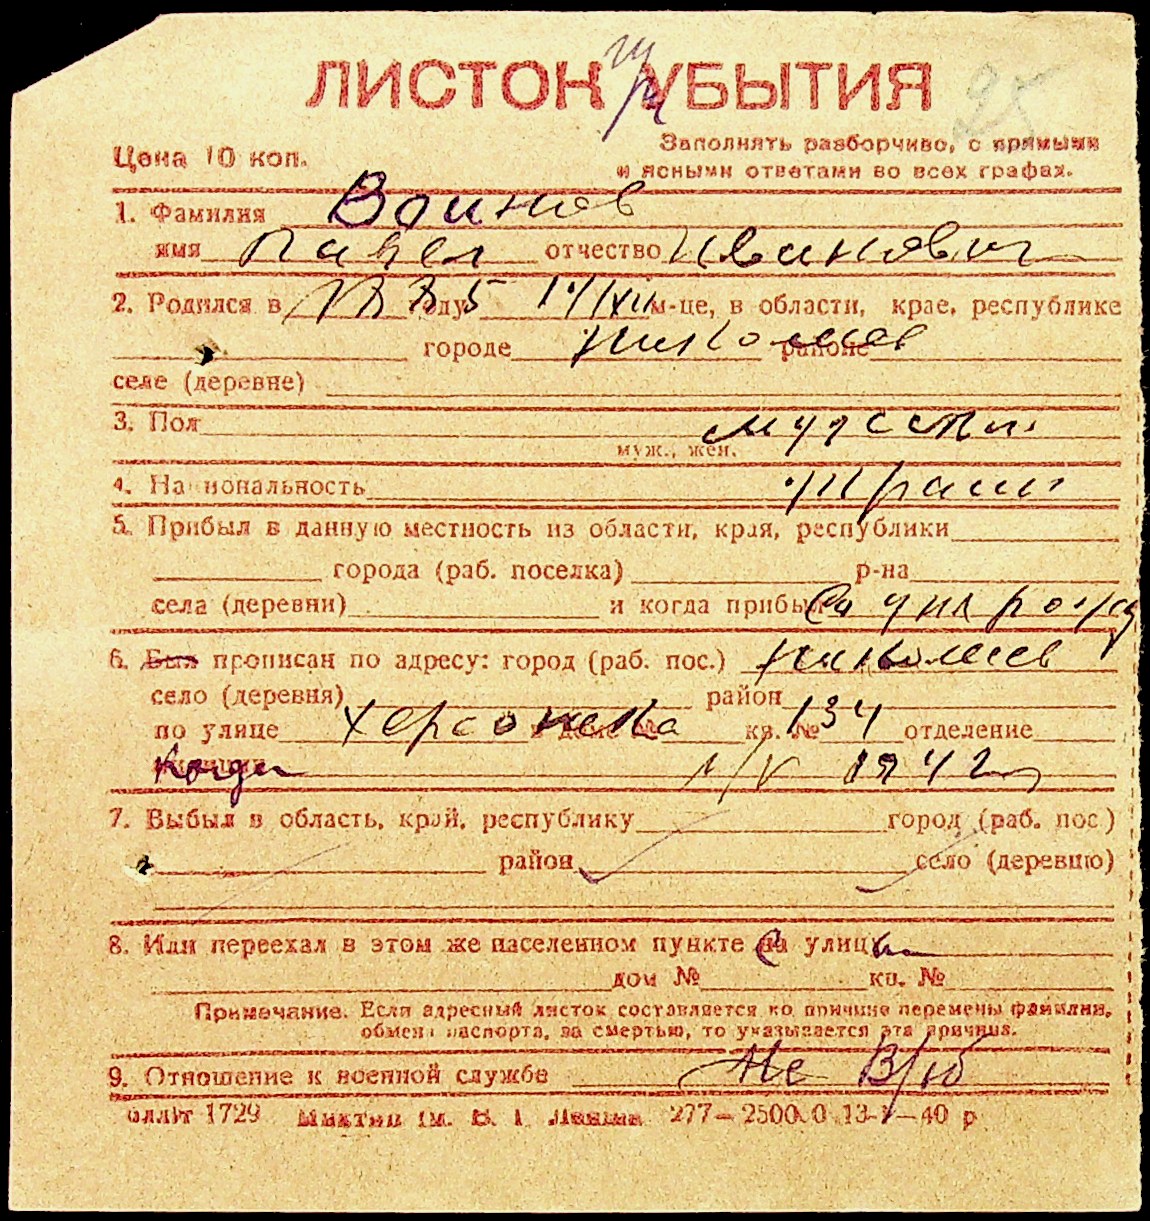 ЛИСТОК УБЫТИЯ
25
Цена 10 коп.
Заполнять разборчиво, с прямыми
и ясными ответами во всех графах.
1. Фамилия Воинов
имя Павел отчество Иванович
2. Родился в 1885 году м-це, в области, крае, республике
городе Николаев районе
селе (деревне)
3. Пол
муж., жен.
4. Национальность
5. Прибыл в данную местность из области, края, республики
города (раб. поселка) р-на
села (деревни) и когда прибыл
6. Был прописан по адресу: город (раб. пос.) Николаев
село (деревня) район
по улице Херсонска кв. № 134 отделение
Когда 1/V 1942
7. Выбыл в область, край, республику город (раб. пос.)
район село (деревню)
8. Или переехал в этом же населенном пункте на улицу
дом № кв. №
Примечание. Если адресный листок составляется по причине перемены фамилии,
обмена паспорта, за смертью, то указывается эта причина.
9. Отношение к военной службе Не В/об
1729 277—2500 0 13- —40 р